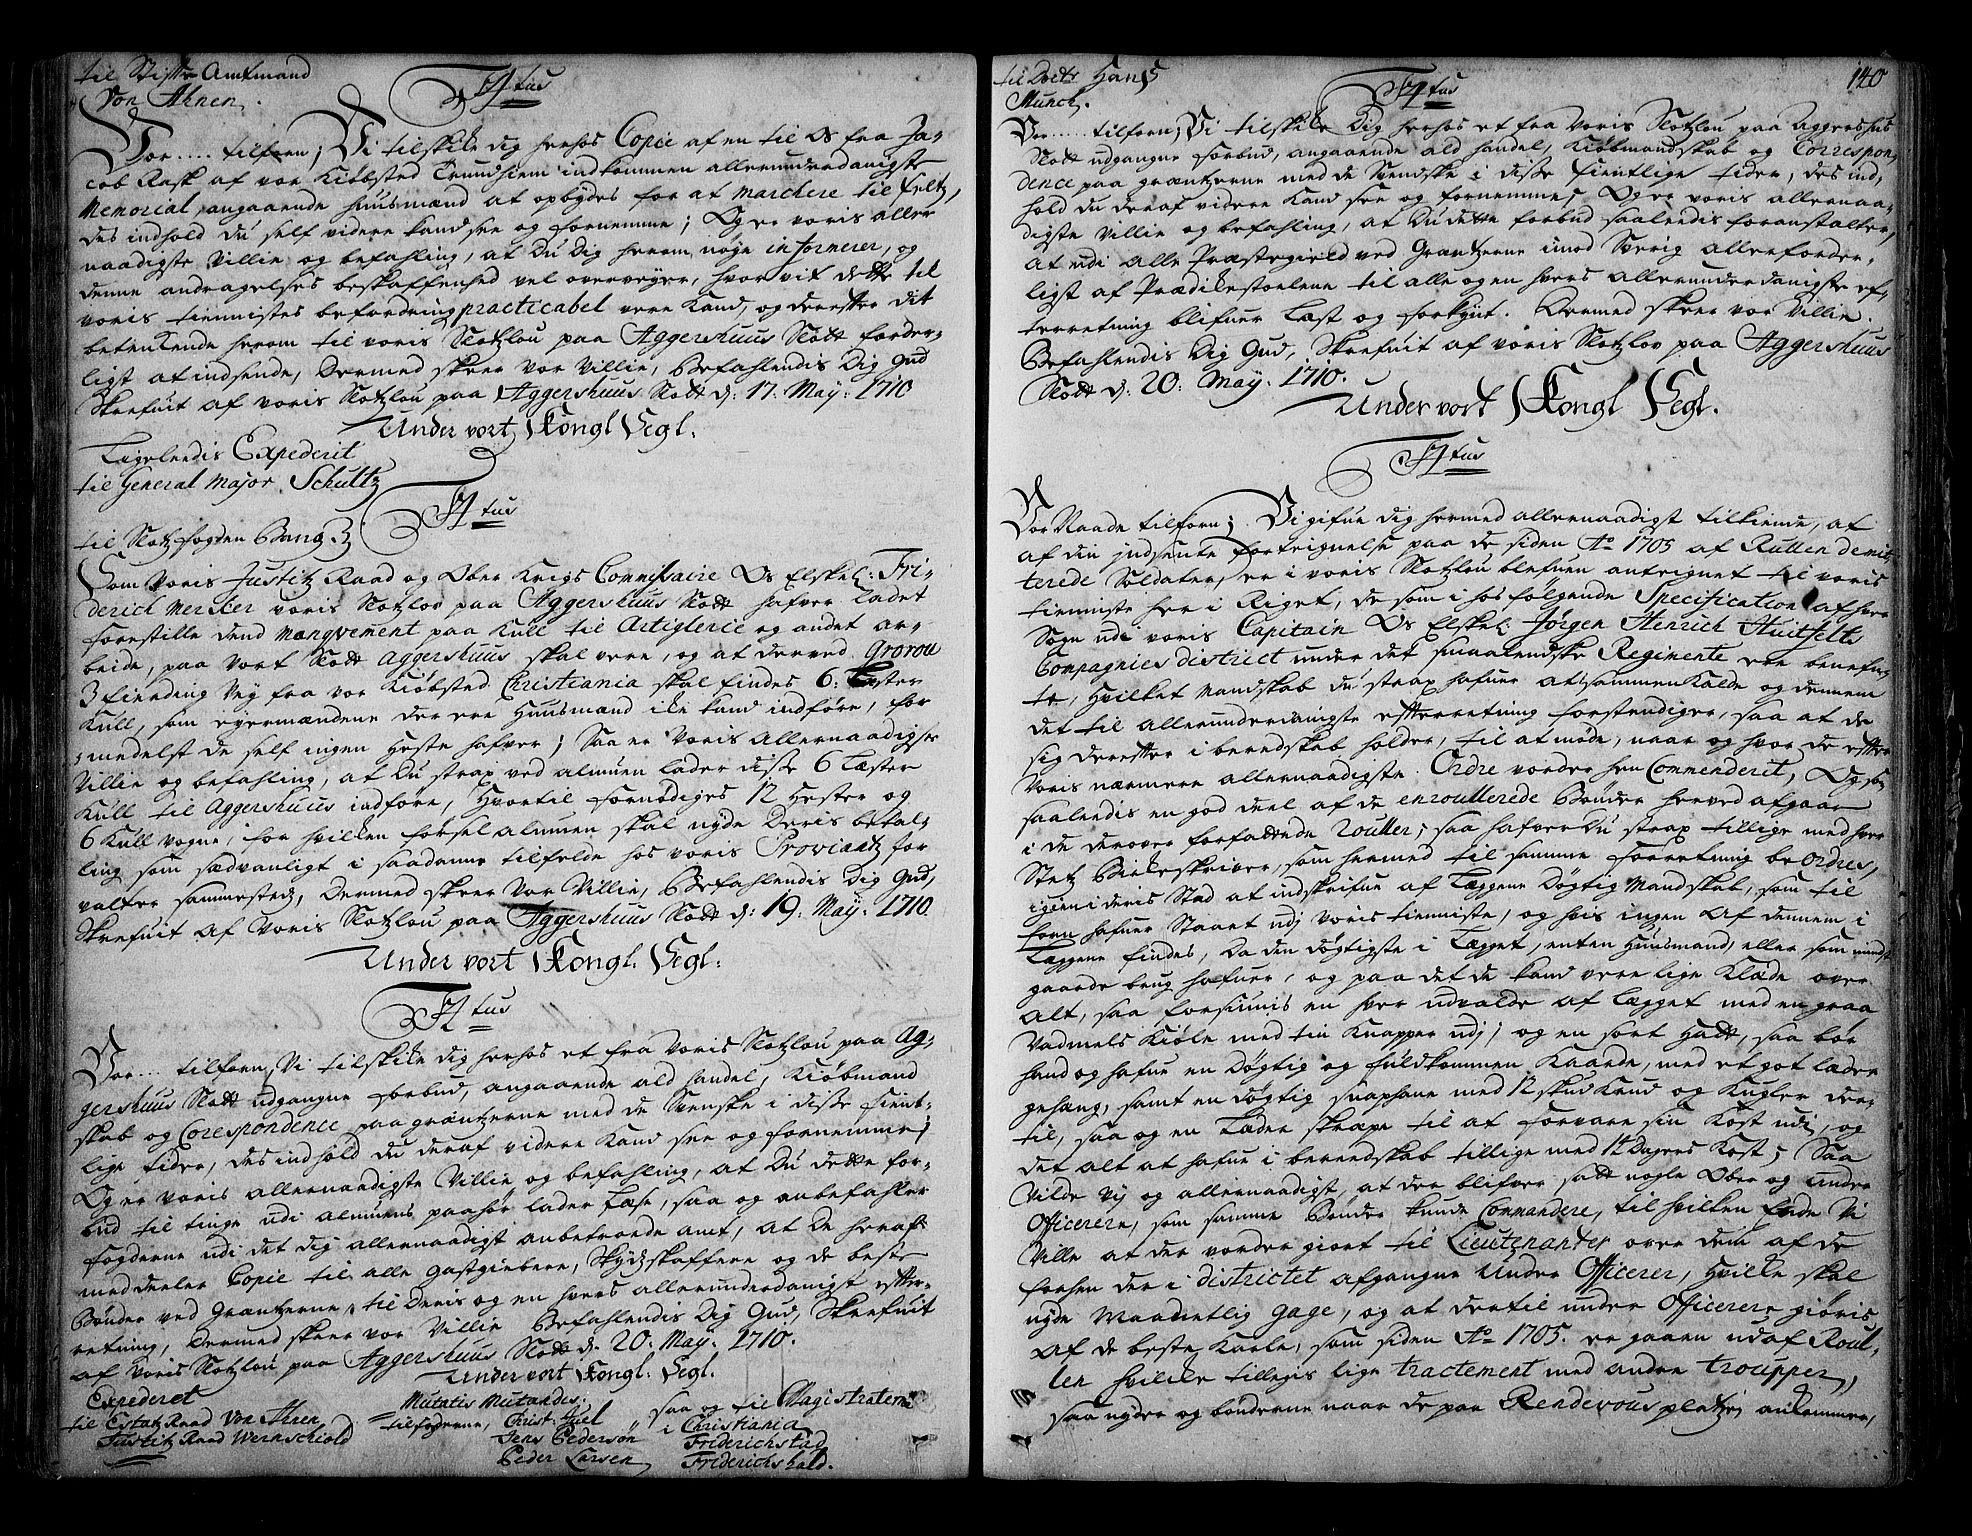 til Stiffts Amtmand
Von Ahnen.
F4tus
Vor .... tilforn; Vi tilskike dig herhos Copie af en til Os fra Ja-
cob Rask af vor Kiøbsted Trundhiem indkommen allerunderdanigste
Memorial, angaaende huusmænd at opbydes for at marchere til feltz,
des indhold du self videre kand see og fornemme; Og er voris aller
naadigste Villie og befahling, at Du Dig herom nøye informerer, og
denne andragelses beskaffenhed vel overveyer, hvor vit dette til
voris tienistes befordring practicabel vere kand, og derefter dit
betenkende herom til voris Slotzlou paa Aggershuus Slott forder-
ligst at indsende, Dermed skeer vor Villie, Befahlendis Dig Gud
Skrefuit af voris Slotzlou paa Aggershuus Slott d: 17. May. 1710
Under vort Kongl Segl.
Ligelendis Expederit
til General Major Schultz
F4tus
til Slotzfogden Bang.
Som voris Justitz Raad og Ober Krigs Commissaire Os Elskel: Fri-
derich Merker voris Slotzlov paa Aggershuus Slott hafver ladet
forestille dend manqvement paa Kull til Artiglerie og andet ar-
beide, paa vort Slott Aggershuus skal vere, og at derved Grorou
3 fierding Vey fra vor Kiøbsted Christiania skal findes 6: Lester
Kull, som eyermændene der ere Huusmænd iki kand indføre, for
medelst de self ingen Heste hafver; Saa er Voris Allernaadigste
Villie og befahling, at Du strax ved almuen lader disse 6 Lester
Kull til Aggershuus indføre, Hvortil fornødiges 12 Hester og
6 Kull vogne, for hvilken førsel almuen skal nyde Deris betal-
ling som sædvanligt i saadanne tilfelde hos voris Proviantz for
valter sammesteds, Dermed skeer Vor Villie, Befahlendis Dig Gud,
Skrefuit af Voris Slotzlou paa Aggershuus Slott d: 19. May. 1710.
Under vort Kongl. Segl:
F4tus
Vor ... tilforn, Vi tilskike dig herhos et fra Voris Slotzlou paa Ag-
gershuus Slott udgangne forbud, angaaende ald handel, Kiøbmand
skab og Corespondence paa grentzerne med de Svenske i disse fient-
lige tider, des indhold du deraf videre kand see og fornemme;
Og er voris allernaadigste Villie og befahling, at Du dette for-
bud til tinge udi almuens paahør lader læse, saa og anbefahler
fogderne udi det dig allernaadigst anbetroede amt, at de heraf
meddeeler Copie til alle gastgiebere, Skydzskaffere og de beste
Bønder ved Grentzerne, til Deris og en hvers allerunderdanigst efter-
retning, Dermed skeer vor Villie Befahlendis Dig Gud, Skrefuit
af Voris Slotzlou paa Aggershuus Slott d. 20. May. 1710.
Under vort Kongl. Segl.
Expederet
til Estatz Raad Von Ahnen
Justitz Raad Wernschiold
Mutatis Mutandis
til fogderne, Christ: Juel
Jens Pedersøn
Peder Larsen
saa og til Magistraterne
i Christiania
Friderichstad
Friderichshald.
140
til Doctr Hans
Munch.
F4tus
Vor .... tilforn; Vi tilskike Dig herhos et fra voris Slotzlou paa Aggershus
Slott udgangne forbud, angaaende ald handel, Kiøbmandskab og Correspon
dence paa grentzerne med de Svendske i disse fientlige tider, des ind,
hold du deraf videre kand see og fornemme, Og er voris allernaa-
digste Villie og befahling, at Du dette forbud saaledis foranstalter,
at udi alle Præstegield ved Grentzerne imod Sverig allerforder-
ligst af Prædikestoelene til alle og en hvers allerunderdanigste ef-
terretning blifuer Læst og forkynt. Dermed skeer vor Villie.
Befahlendis Dig Gud, Skrefuit af voris Slotzlov paa Aggershuus
Slott d: 20. May. 1710.
Under vort Kongl Segl.
F4tus
Vor Naade tilforn; Vi gifue dig hermed allernaadigst tilkiende, at
af din indsente fortegnelse paa de siden Ao 1705 af Rullen demit-
terede Soldater, er i voris Slotzlou blefuen antegnet til voris
tienniste her i Riget, de som i hosfølgende Specification af hver
Sogn udi voris Capitain Os Elskel: Jørgen Henrich Huitfelts
Compagnies district under det smaalendske Regimente ere benefn-
te, Hvilket Mandskab du strax hafuer at sammenkalde og dennem
det til allerunderdanigste efterretning forstendiger, saa at de
sig derefter i beredskab holder, til at møde, naar og hvor de efter
Voris nærmere allernaadigste Ordre vorder hen Commenderit, Og som
saaledis en god deel af de enroullerede Bønder herved afgaar
i de derover forfattende Rouller; saa hafver Du strax tillige med hver
Stetz Bielkeskriver, som hermed til samme forretning beordres,
igien i deris Sted at indskrifue af Læggene Døgtig Mandskab, som til
forn hafuer Staaet udj voris tienniste, og hvis ingen af dennem i
Læggene findes, da den døgtigste i Legget, enten Huusmand, eller som mindst
gaarde brug hafuer, og paa det de kand vere lige klæde over
alt, saa forsiunis en hver udvalde af Legget med en graa
Vadmels Kiole med tin Knapper udj, og en sort Hatt, saa bør
hand og hafue en døgtig og fuldkommen Kaarde, med et got læder
gehæng, samt en døgtig snaphane med 12 skud Krud og Kugler der-
til, saa og en Læder skræpe til at forvare sin Kost udi, og
det alt at hafue i beredskab tillige med 14 Dagers Kost; Saa
Vilde Vj og allernaadigst, at der blifver satt nogle Ober og under
Officerer, som samme Bønder kunde Commandere, til hvilken Ende Vi
Ville at der vorder giort til Lieutenanter over dem af de
forhen der i districtet afgangne Under Officerer, Hvilke skal
nyde Maanetlig gage, og at dertil under Officerer giøris
af de beste Karle, som siden Ao 1705. er gaaen ud af Roul-
len hvilke tillegis lige tractement med andre troupper,
saa nyder og bønderne naar de paa Rendevous pladtzen ankommer,